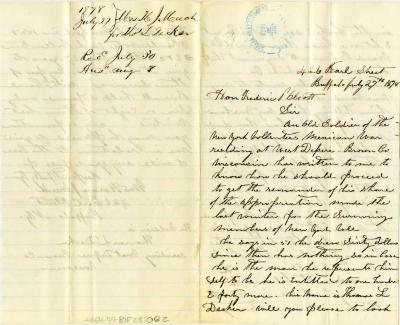 1878
July 27
Mrs H. J.
for Thos L. Decker
Recd July 30
Ansd Aug 8
Pearl Street
Buffalo July 27th 1878
Hon Frederic P Olcott
Sir
An Old Soldier of the
New York Volunteers Mexican War
residing at West Depere Brown Co
Wisconsin has written to me to
know how he should proceed
to get the remainder of his share
of the appropriation made the
last winter for the Surviving
members of New York Voll
he says in 57 he drew Sixty Dollars
Since then has nothing so in case
he is the man he represents him
self to be he is entitled to one hundred
& forty more. his name is Thomas L
Decker will you please to look